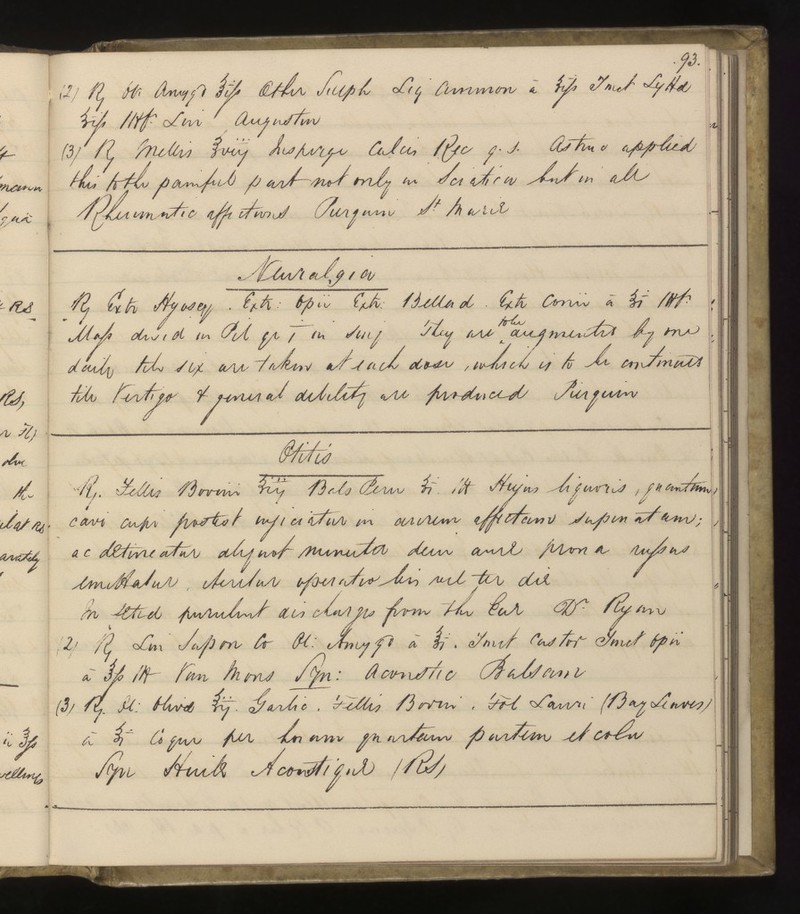 93.
(2) ℞ Ol: Amygd ʒijſs Æther Sulph Liq Ammon ā ʒijſs Tinct Lytta
ʒijſs Mft Lin Augustin
(3) ℞ Mellis ℥viij Insperge Calcis Rec q. s. Astruc applied
this to the painful part not only in Sciatica but in all
Rheumatic affections Pierquin St Marie
Neuralgia
℞ Extr Hyoscy. Extr: Opii Extr: Bellad Extr Conii ā ʒi Mft
Maſs divid in Pil gr I in sing They are to be augmented by one
daily till six are taken at each dose, which is to be continued
till Vertigo & general debility are produced Pierquin
Otitis
℞. Fellis Bovini ʒiij Bals Peru ʒi M Hujus liquoris, quantum
cavo capi postest injiciatur in aurem affectam supinatam;
ac detineatur aliquot minuta dein aure prona ruſsus
emittatur. Iteritur operatio bis vel ter die
In fetid purulent discharges from the Ear Dr Ryan
(2) ℞ Lin Sapon Co Ol: Amygd ā ʒi. Tinct Castor Tinct Opii
ā ʒſs M Van Mons Syn: Acoustic Balsam
(3) ℞. Ol: Olivæ ʒiij. Garlic. Fellis Bovini. Fol Lauri (Bay Leaves)
ā ʒi Coque per horam quartam partem et cola
Syn Huile Acoustique (RS)
mann
RS
RS,
the
ā ʒſs